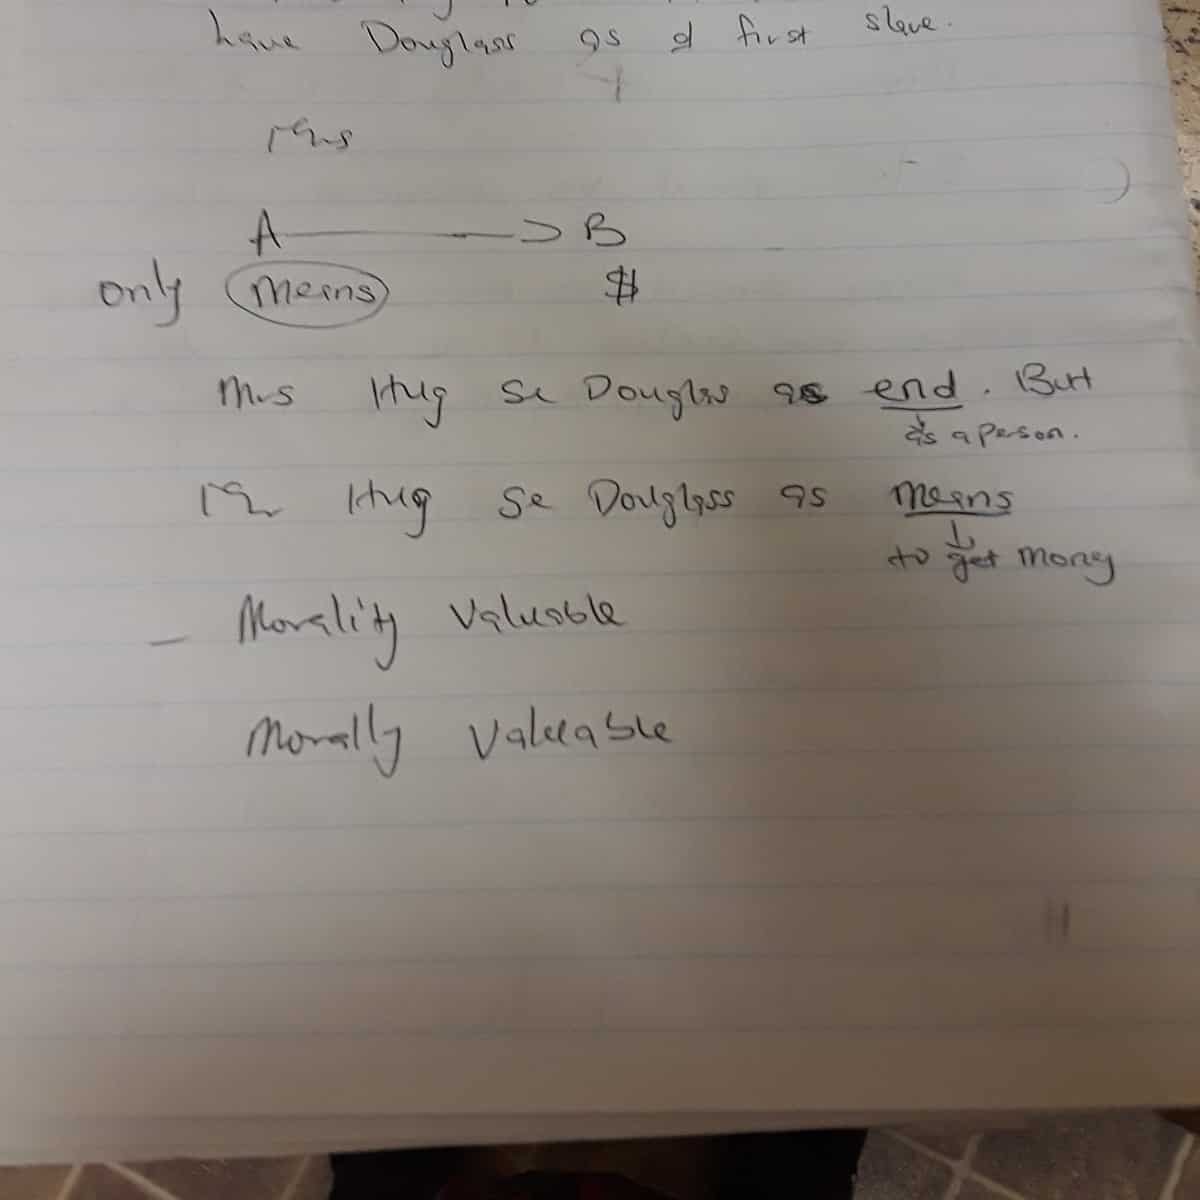 have Douglass as a first slave.
A → B
only means $
Mrs Hug Se Douglas as end. But
as a person.
Mr Hug Se Douglass as means
to get money
- Morality Valuable
Morally Valuable